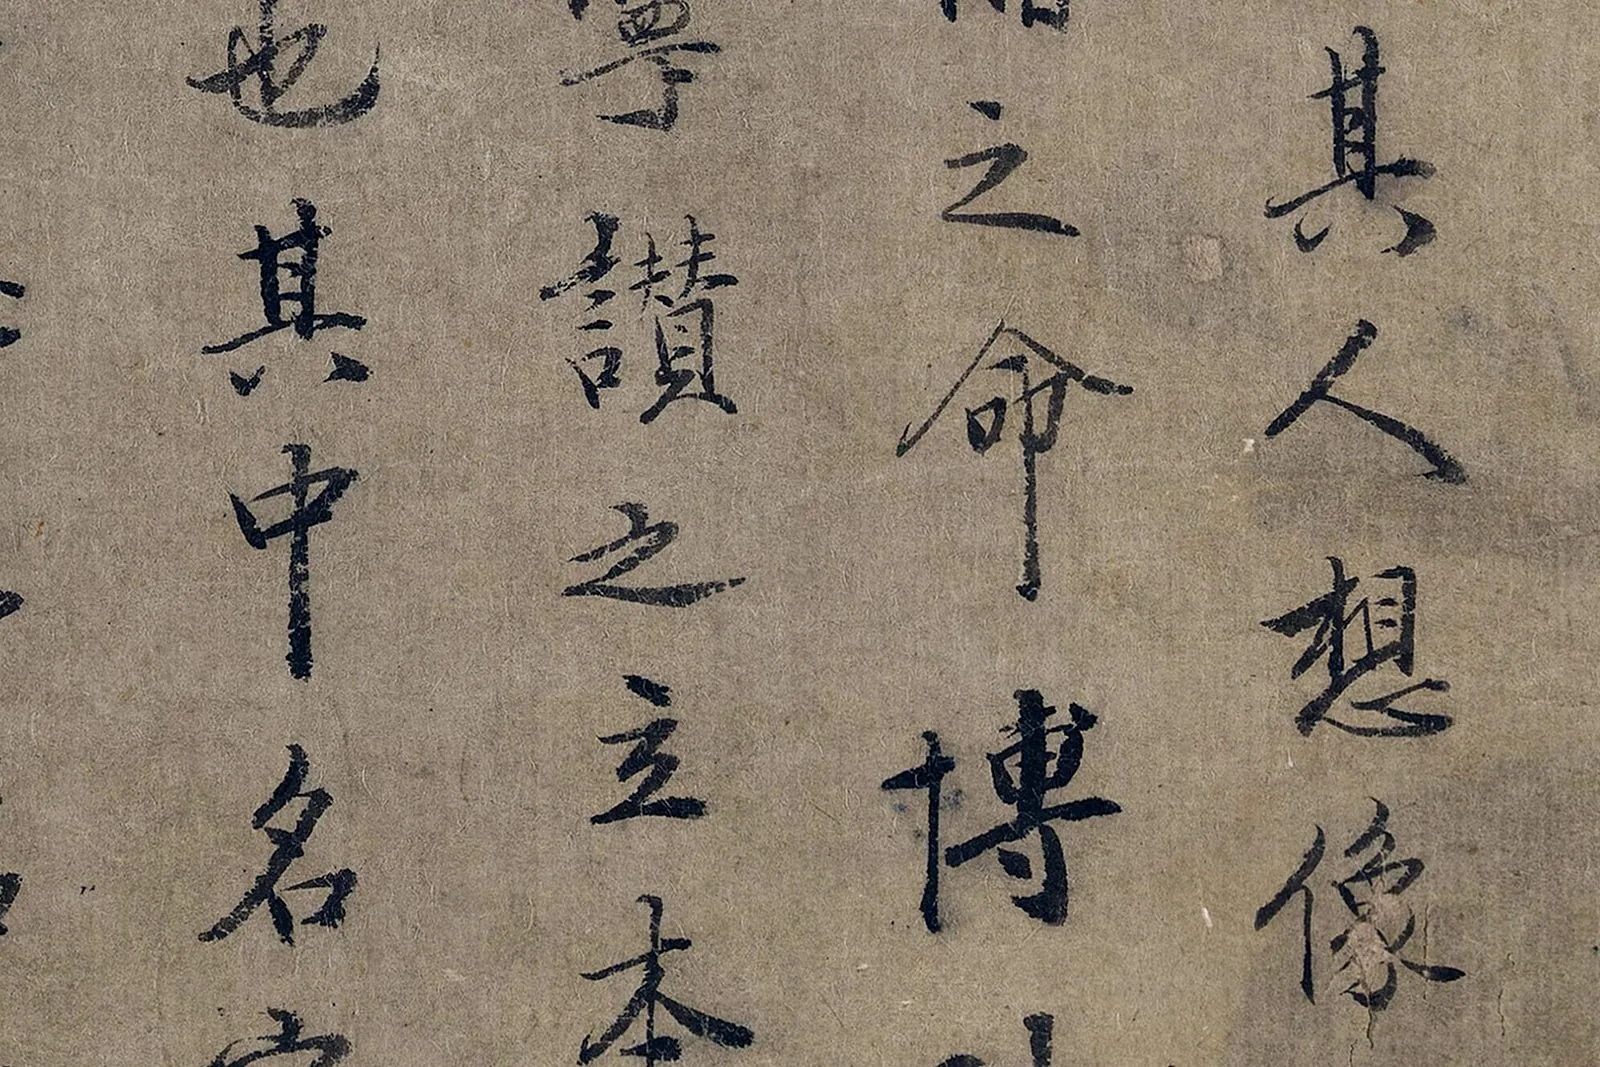 其人想像
之命博
寧讃之立本
也其中名